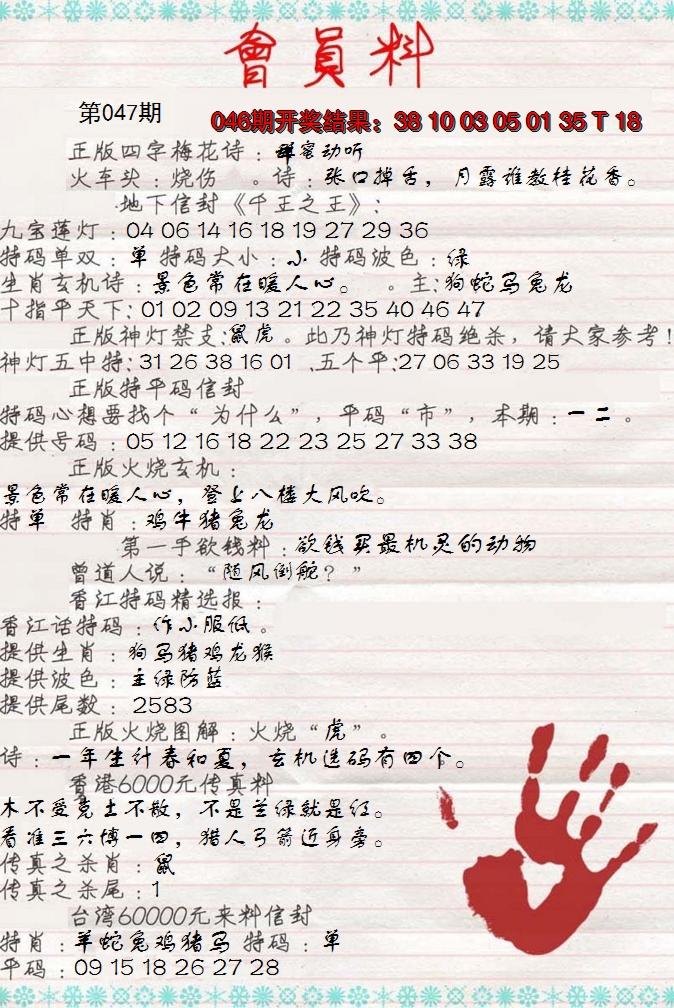 會員料
第047期
046期开奖结果：38 10 03 05 01 35 T 18
正版四字梅花诗：群蜜动听
火车头：烧伤 。诗：张口掉舌，月露谁教桂花香。
地下信封《千王之王》：
九宝莲灯：04 06 14 16 18 19 27 29 36
特码单双：单 特码大小：小 特码波色：绿
生肖玄机诗：景色常在暖人心。 。主：狗蛇马兔龙
十指平天下：01 02 09 13 21 22 35 40 46 47
正版神灯禁支：鼠虎。此乃神灯特码绝杀，请大家参考！
神灯五中特：31 26 38 16 01 、五个平：27 06 33 19 25
正版特平码信封
特码心想要找个“为什么”，平码“市”，本期：一二。
提供号码：05 12 16 18 22 23 25 27 33 38
正版火烧玄机：
景色常在暖人心，登上八楼大风吹。
特单 特肖：鸡牛猪兔龙
第一手欲钱料：欲钱买最机灵的动物
曾道人说：“随风倒舵？”
香江特码精选报：
香江话特码：作小服低。
提供生肖：狗马猪鸡龙猴
提供波色：主绿防蓝
提供尾数：2583
正版火烧图解：火烧“虎”。
诗：一年生计春和夏，玄机选码有四个。
香港6000元传真料
木不受克土不散，不是兰绿就是红。
看准三六博一四，猎人弓箭近身旁。
传真之杀肖：鼠
传真之杀尾：1
台湾60000元来料信封
特肖：羊蛇兔鸡猪马 特码：单
平码：09 15 18 26 27 28